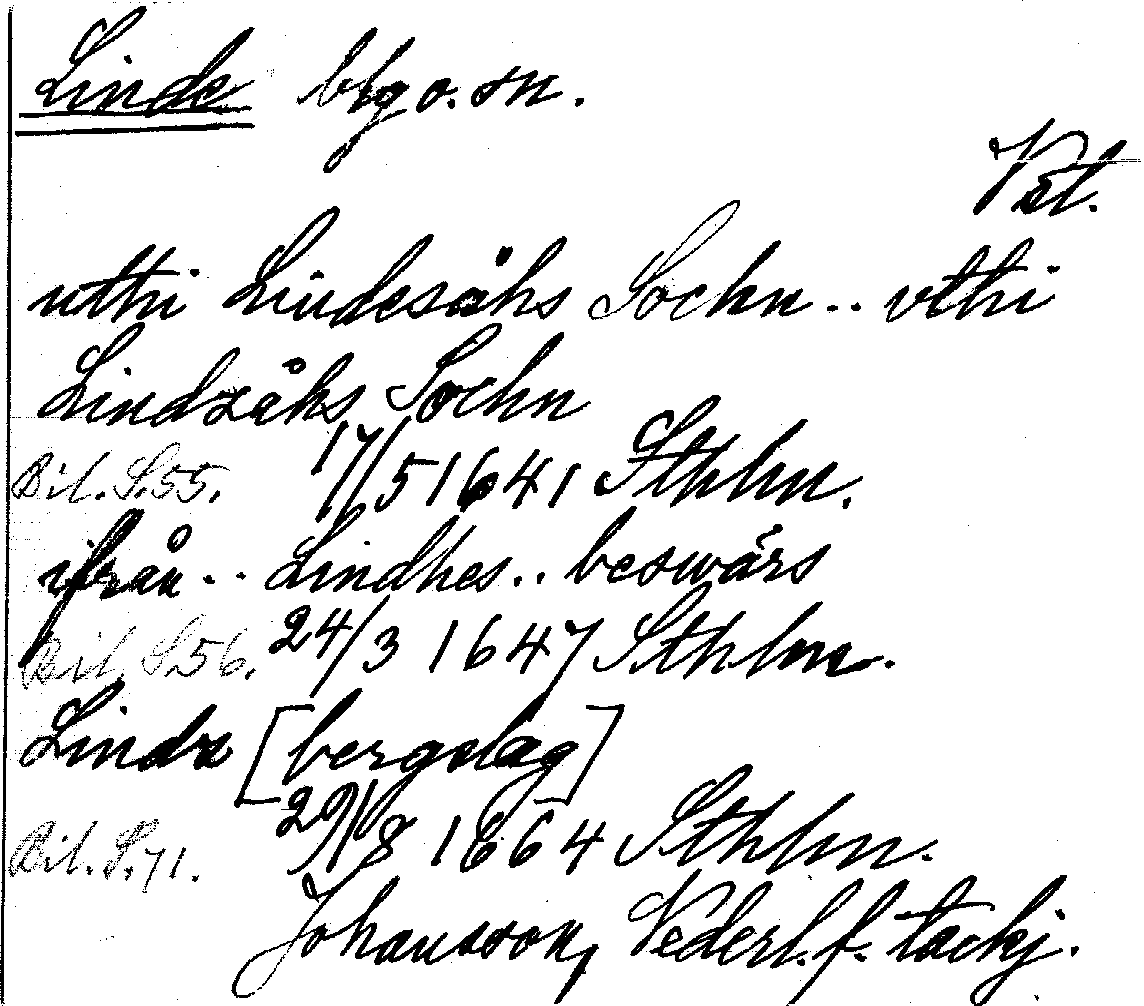 Linde blg o. sn.
Vst.
uthi Lindesåhs Sochn.. vthi
Lindzåhs Sochn
Bil. S.55. 17/5 1641 Sthlm.
ifrån.. Lindhes.. beswärs
Bil. S.56. 24/3 1647 Sthlm.
Linda [bergslag]
Bil. S.71. 29/8 1664 Sthlm.
Johansson, Vederl. f. tackj.